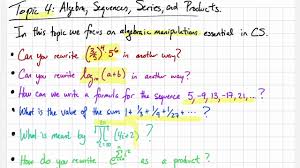 Topic 4: Algebra, Sequences, Series, and Products.
In this topic we focus on algebraic manipulations essential in CS.
• Can you rewrite (3/5)⁴·5⁶ in another way?
• Can you rewrite logₘ(a+b) in another way?
• How can we write a formula for the sequence 5, -9, 13, -17, 21, ... ?
• What is the value of the sum 1 + 1/3 + 1/9 + 1/27 + ... ?
• What is meant by ∏ (4i+2) ?
• How do you rewrite as a product ?